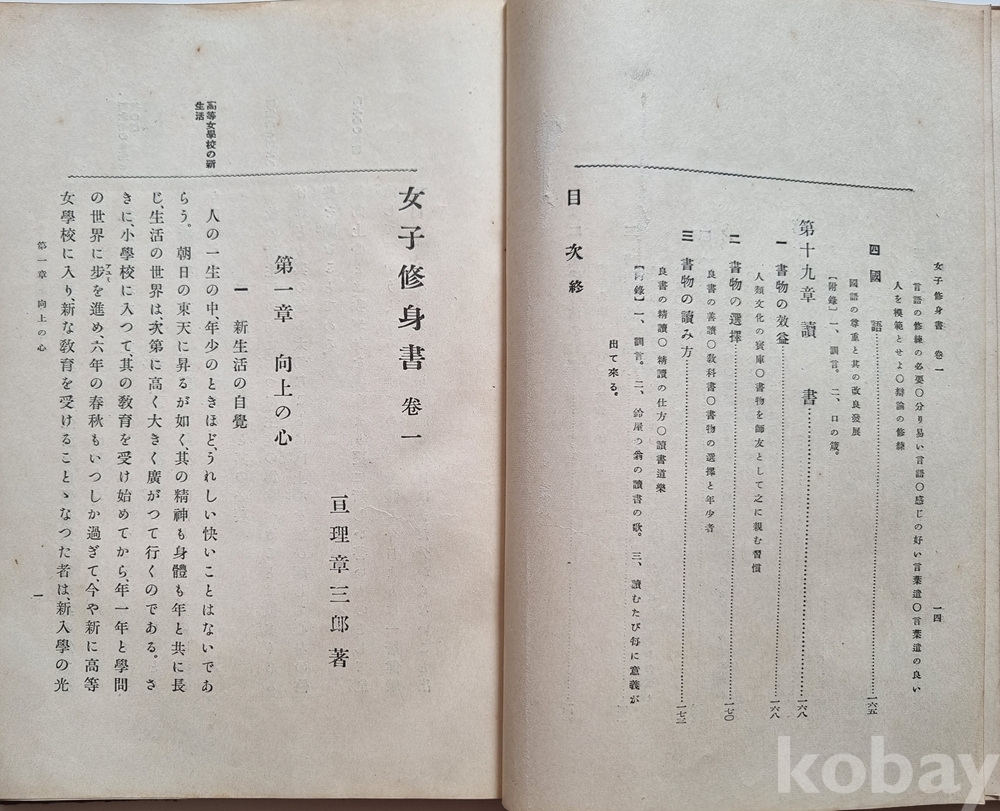 女子修身書 卷一
一四
言語の修練の必要〇分り易い言語〇感じの好い言葉遣〇言葉遣の良い
人を模範とせよ〇辯論の修練
四 國語………一六五
國語の尊重と其の改良發展
【附錄】 一、訓言。 二、口の箴。
第十九章 讀書………一六八
一 書物の效益………一六八
人類文化の寶庫〇書物を師友として之に親む習慣
二 書物の選擇………一七〇
良書の善讀〇敎科書〇書物の選擇と年少者
三 書物の讀み方………一七二
良書の精讀〇精讀の仕方〇讀書道樂
【附錄】 一、訓言。 二、鈴屋の翁の讀書の歌。 三、讀むたび每に意義が
出て來る。
目次終
高等女學校の新
生活
女子修身書 卷一
亘理章三郎著
第一章 向上の心
一 新生活の自覺
人の一生の中、年少のときほど、うれしい快いことはないであ
らう。 朝日の東天に昇るが如く其の精神も身體も年と共に長
じ、生活の世界は、次第に高く大きく廣がつて行くのである。 さ
きに、小學校に入つて、其の敎育を受け始めてから、年一年と學問
の世界に步アユミを進め、六年の春秋もいつしか過ぎて、今や新に高等
女學校に入り、新な敎育を受けることゝなつた者は、新入學の光
第一章 向上の心
一
kobay